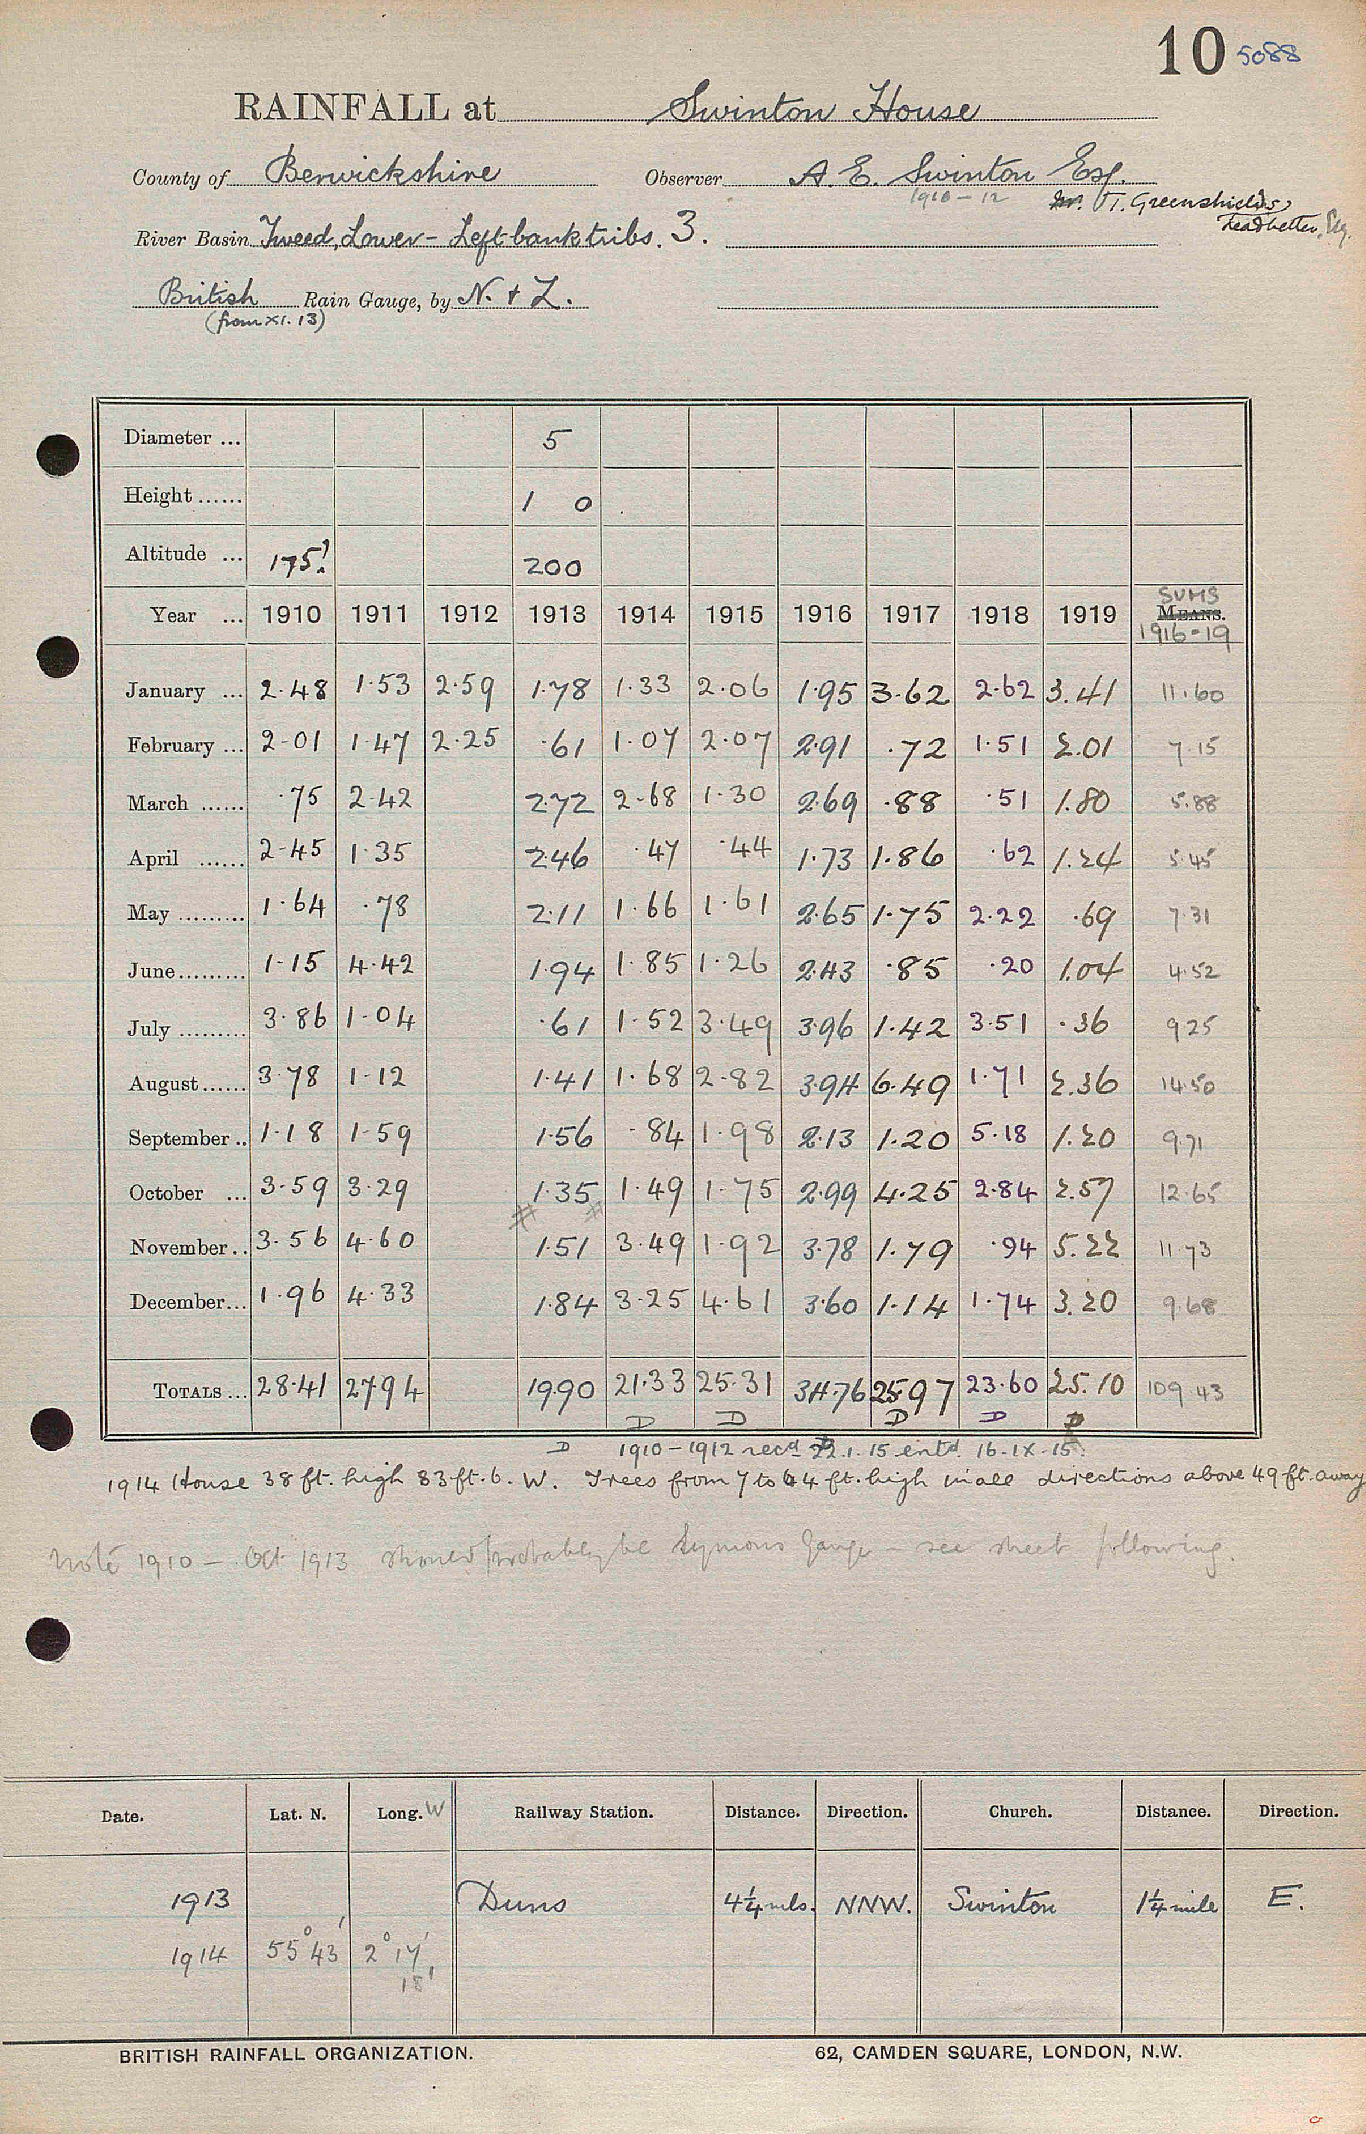 10 5088
RAINFALL at Swinton House
County of Berwickshire Observer A. E. Swinton Esq.
1910-12 Mr. T. Greenshields,
River Basin Tweed, Lower - Left bank tribs. 3. Leadbetter, Esq.
British Rain Gauge, by N. & Z.
(from XI. 13)
Diameter ... 5
Height ...... 1 0
Altitude ... 175? 200
SUMS
Year ... 1910 1911 1912 1913 1914 1915 1916 1917 1918 1919 MEANS.
1916-19
January ... 2.48 1.53 2.59 1.78 1.33 2.06 1.95 3.62 2.62 3.41 11.60
February ... 2.01 1.47 2.25 .61 1.07 2.07 2.91 .72 1.51 2.01 7.15
March ...... .75 2.42 2.72 2.68 1.30 2.69 .88 .51 1.80 5.88
April ...... 2.45 1.35 2.46 .47 .44 1.73 1.86 .62 1.24 5.45
May ......... 1.64 .78 2.11 1.66 1.61 2.65 1.75 2.22 .69 7.31
June ......... 1.15 4.42 1.94 1.85 1.26 2.43 .85 .20 1.04 4.52
July ......... 3.86 1.04 .61 1.52 3.49 3.96 1.42 3.51 .36 9.25
August ...... 3.78 1.12 1.41 1.68 2.82 3.94 6.49 1.71 2.36 14.50
September .. 1.18 1.59 1.56 .84 1.98 2.13 1.20 5.18 1.20 9.71
October ... 3.59 3.29 1.35 1.49 1.75 2.99 4.25 2.84 2.57 12.65
November .. 3.56 4.60 1.51 3.49 1.92 3.78 1.79 .94 5.22 11.73
December ... 1.96 4.33 1.84 3.25 4.61 3.60 1.14 1.74 3.20 9.68
TOTALS ... 28.41 27.94 19.90 21.33 25.31 34.76 25.97 23.60 25.10 109.43
D D D D D
D 1910-1912 recd 22.1.15 entd. 16.IX.15.
1914 House 38 ft. high 83 ft. 6. W. Trees from 7 to 64 ft. high in all directions above 49 ft. away
Note 1910 - Oct 1913 should probably be Symons Gauge - see sheet following.
Date. Lat. N. Long. W Railway Station. Distance. Direction. Church. Distance. Direction.
1913 Duns 4¼ mls. NNW. Swinton 1¼ mile E.
1914 55° 43' 2° 17'
18'
BRITISH RAINFALL ORGANIZATION. 62, CAMDEN SQUARE, LONDON, N.W.